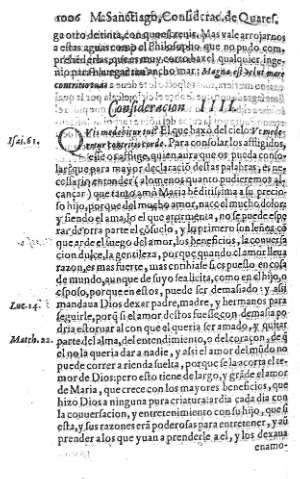 1006 M. Sanctiago, Considerac. de Quares.
ga otro de tinta, con que escreuir. Mas vale arrojarnos
a estas aguas como el Philosopho que no pudo com-
prehéderlas, que es muy corto baxel qualquier inge-
nio para nauegar tan ancho mar: Magna est velut mare
contritio tua.
Consideracion IIII.
Isai.61.
QVis medebitur tui? El que baxò del cielo: Vt mede-
contritos corde. Para consolar los affligidos,
q̃ se offlige, quien aura que os pueda conso-
lar? que para mayor declaració destas palabras, es ne-
cessario entender (alomenos quanto pudieremos al-
cançar) que tanto ama Maria bēditissima a su precio-
so hijo, porque del mucho amor, nace el mucho dolor:
y siendo el amalo el que atormenta, no se puede espe-
rar de otra parte el cósuelo, y lo primero son leños có
que arde el fuego del amor, los beneficios, la conuersa
cion dulce, la gentileza, porque quando el amor lleua
razon, es mas fuerte, mas entibiase si es puesto en cosa
de mundo, aunque de suyo sea licita, como en el hijo, o
esposo, porque en estos, puede ser demasiado: y assi
Luc.14.
mandaua Dios dexar padre, madre, y hermanos para
seguirle, porq̃ si el amor destos fuesse con demasia po
dria estoruar al con que el queria ser amado, y quitar
Match.22.
parte del alma, del entendimiento, o del coraçon, de q̃
el no la queria dar a nadie, y assi el amor del mũdo no
puede correr a rienda suelta, porque se la acorta el te-
mor de Dios: pero esto tiene de largo, y gráde el amor
de Maria, que crece con los mayores beneficios, que
hizo Dios a ninguna pura criatura: ardia cada dia con
la conuersacion, y entretenimiento con su hijo, que si
esta, y sus razones erá poderosas para entretener, y aũ
prender a los que yuan a prenderle a el, y los dexaua
enamo-